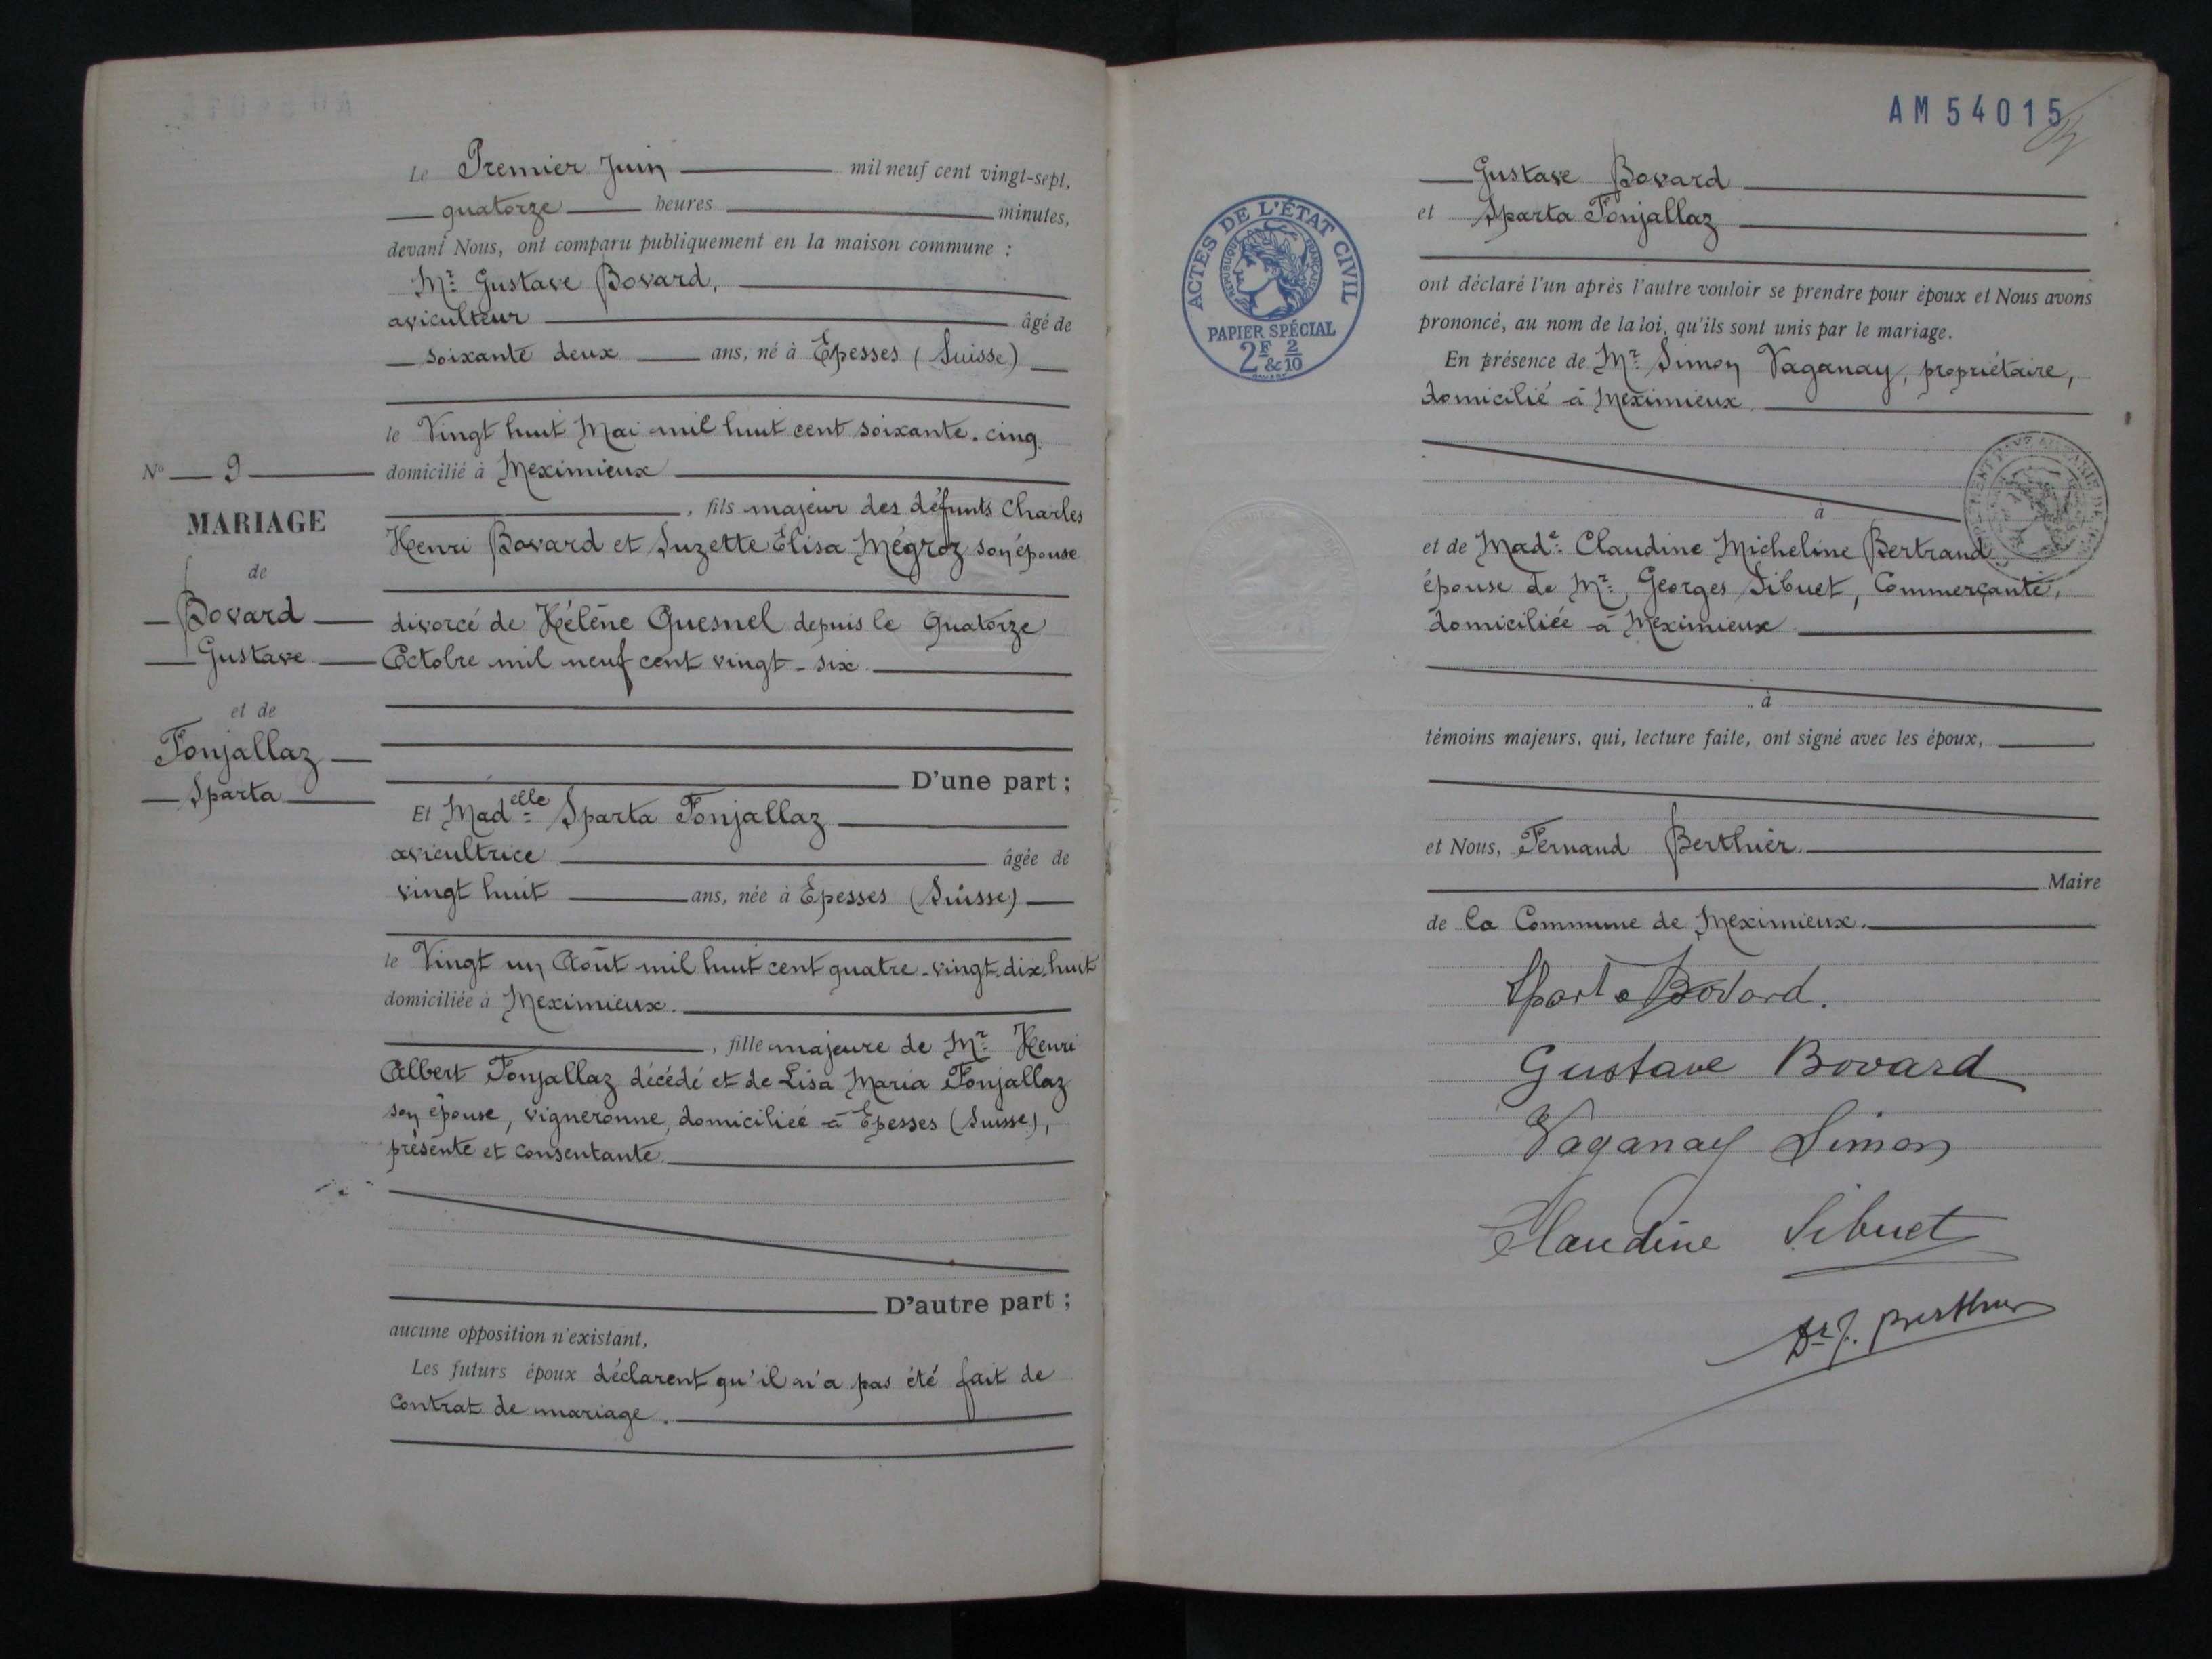 Le Premier Juin mil neuf cent vingt-sept,
quatorze heures minutes,
devant Nous, ont comparu publiquement en la maison commune :
Mr Gustave Bovard,
aviculteur âgé de
soixante deux ans, né à Epesses (Suisse)
le Vingt huit Mai mil huit cent soixante-cinq
domicilié à Meximieux
, fils majeur des défunts Charles
Henri Bovard et Suzette Elisa Mégroz son épouse
divorcé de Hélène Quesnel depuis le Quatorze
Octobre mil neuf cent vingt-six.
D'une part ;
Et Madelle Sparta Fonjallaz
avicultrice âgée de
vingt huit ans, née à Epesses (Suisse)
le Vingt un Août mil huit cent quatre-vingt-dix-huit
domiciliée à Meximieux.
, fille majeure de Mr Henri
Albert Fonjallaz décédé et de Lisa Maria Fonjallaz
son épouse, vigneronne, domiciliée à Epesses (Suisse),
présente et consentante.
D'autre part ;
aucune opposition n'existant,
Les futurs époux déclarent qu'il n'a pas été fait de
Contrat de mariage.
No 9
MARIAGE
de
Bovard
Gustave
et de
Fonjallaz
Sparta
AM 54015
ACTES DE L'ÉTAT CIVIL
RÉPUBLIQUE FRANÇAISE
PAPIER SPÉCIAL
2F & 2/10
Gustave Bovard
et Sparta Fonjallaz
ont déclaré l'un après l'autre vouloir se prendre pour époux et Nous avons
prononcé, au nom de la loi, qu'ils sont unis par le mariage.
En présence de Mr Simon Vaganay, propriétaire,
domicilié à Meximieux
à
et de Made Claudine Micheline Bertrand
épouse de Mr Georges Sibuet, Commerçante,
domiciliée à Meximieux
à
témoins majeurs, qui, lecture faite, ont signé avec les époux,
et Nous, Fernand Berthier.
Maire
de la Commune de Meximieux.
Sparta Bovard.
Gustave Bovard
Vaganay Simon
Claudine Sibuet
Dr F. Berthier